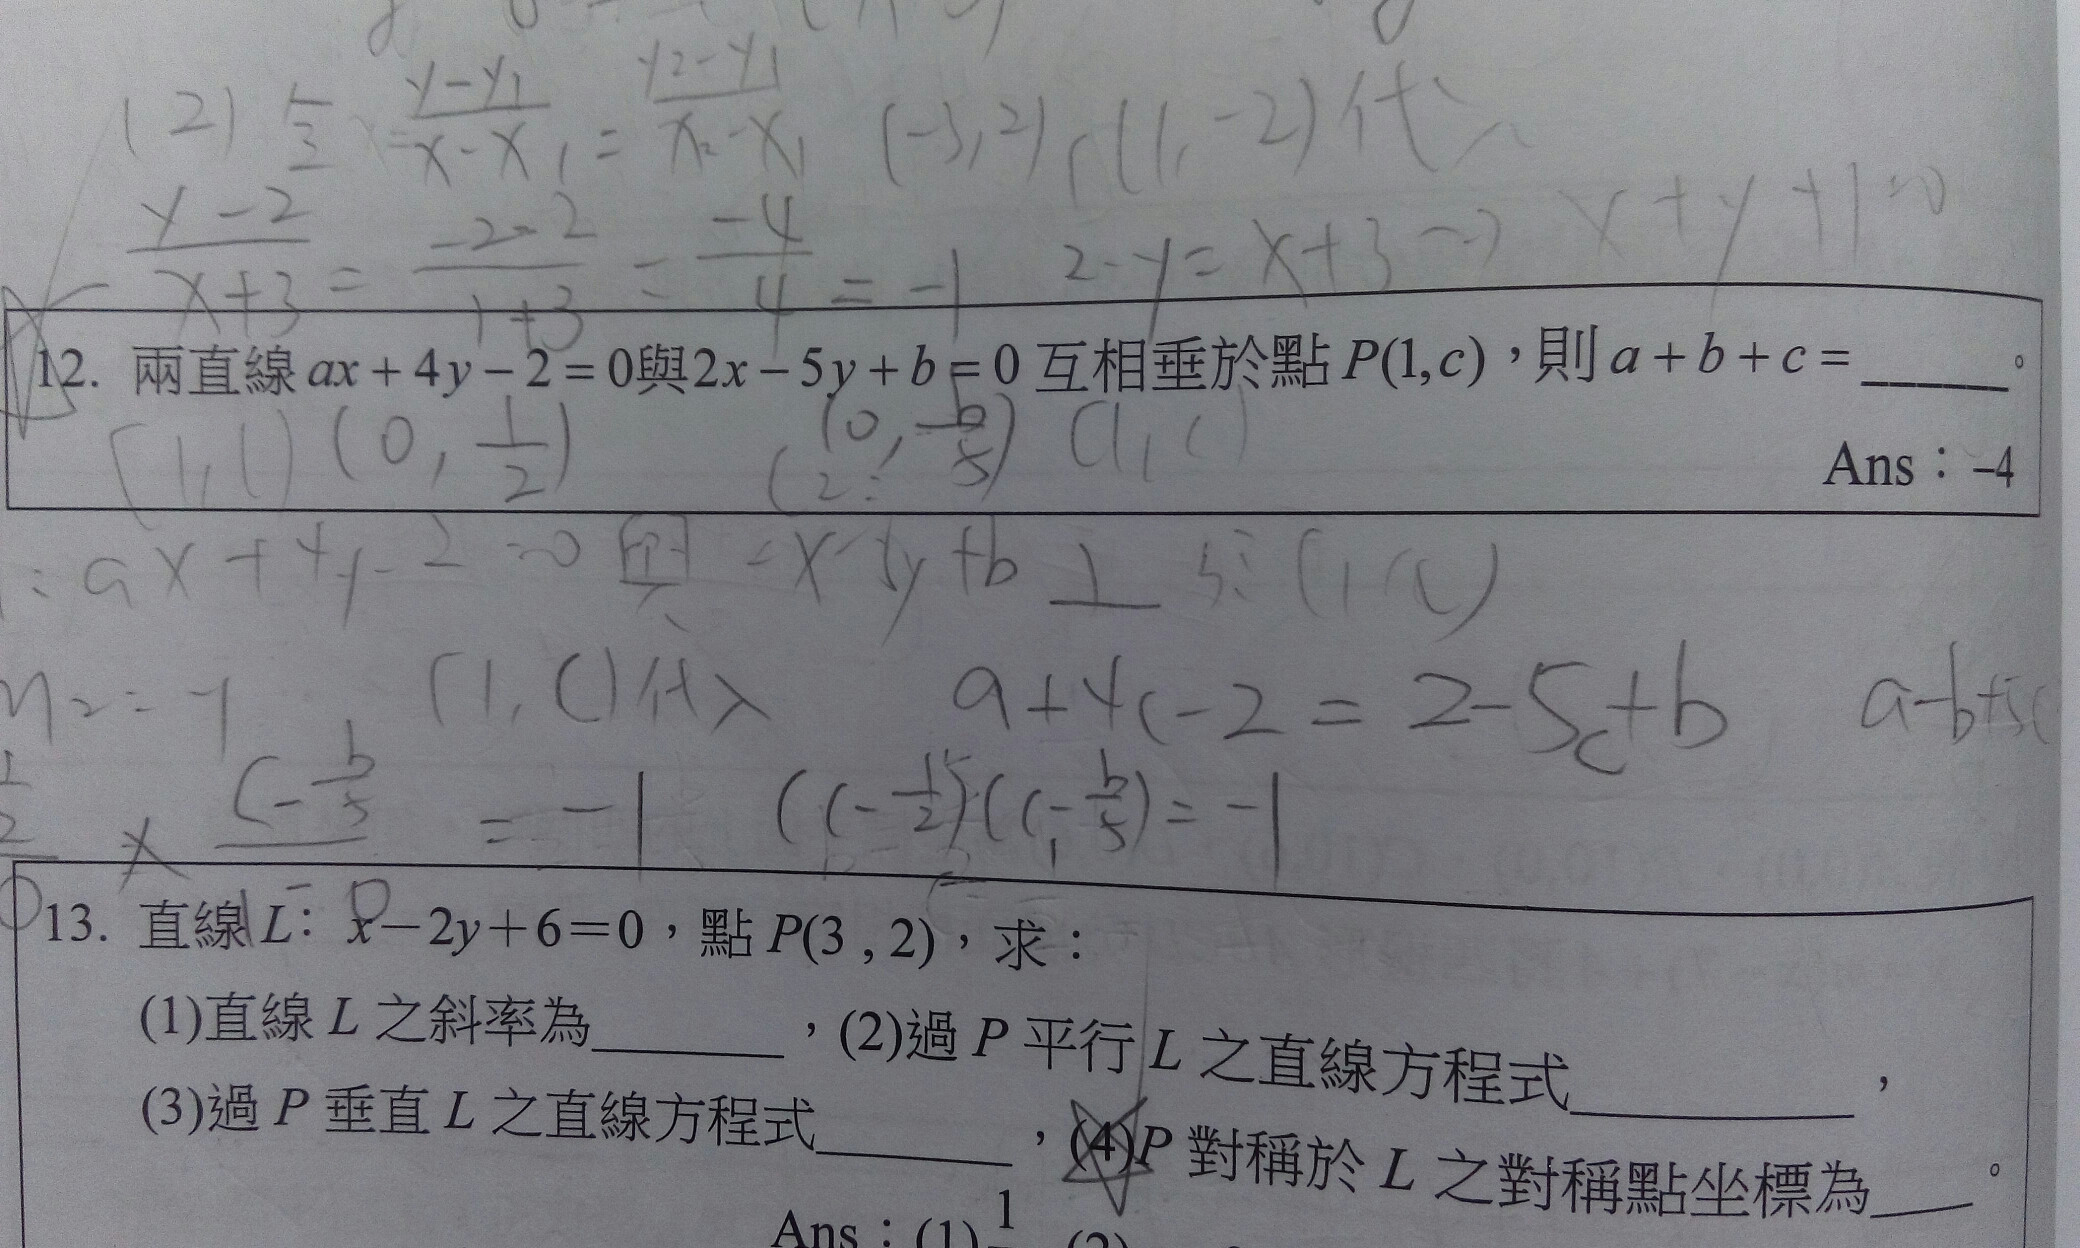 (2) = \frac{y-y_1}{x-x_1} = \frac{y_2-y_1}{x_2-x_1} (-3,2), (1,-2) 代入
\frac{y-2}{x+3} = \frac{-2-2}{1+3} = \frac{-4}{4} = -1 2-y=x+3 → x+y+1=0
12. 兩直線 ax+4y−2=0與2x−5y+b=0 互相垂於點 P(1,c),則 a+b+c=______。
(1,c) (0, \frac{1}{2}) (0, \frac{b}{5}) (1,c)
Ans:−4
ax+4y-2=0 與 =x-5y+b ⊥ (1,c)
(1,c)代入 a+4c-2=2-5c+b a-b+
× \frac{c-\frac{b}{5}}{1-0} = -1 (c-\frac{1}{2})(c-\frac{b}{5})=-1
13. 直線 L: x−2y+6=0,點 P(3,2),求:
(1)直線 L 之斜率為________,(2)過 P 平行 L 之直線方程式____________,
(3)過 P 垂直 L 之直線方程式________,(4)P 對稱於 L 之對稱點坐標為____。
Ans:(1) 1 (2)